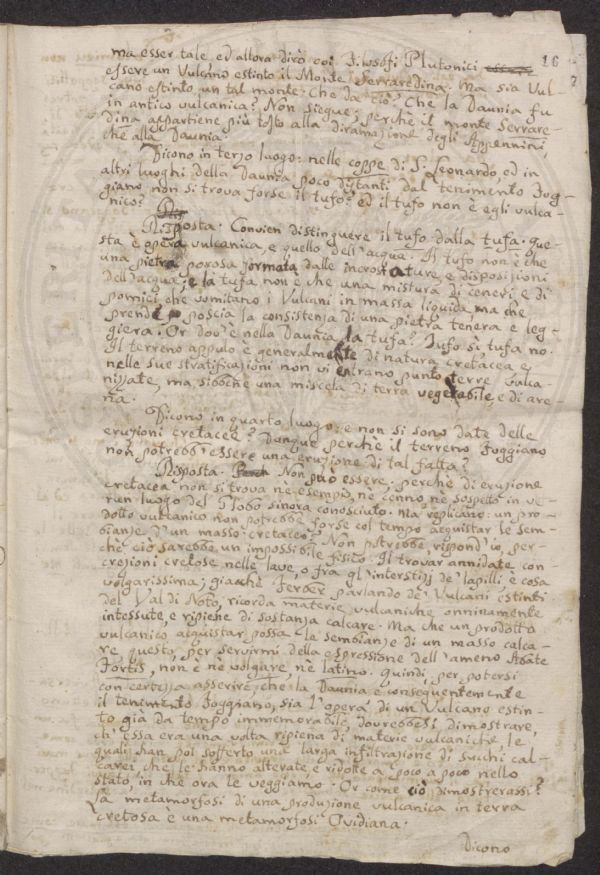 16
ma esser tale, ed allora dirò coi Filosofi Plutonici
essere un Vulcano estinto il Monte Serraredina. Ma sia Vul-
cano estinto un tal monte: Che da ciò? Che la Daunia fu
in antico vulcanica? Non siegue; perchè il monte Serrare-
dina appartiene più tosto alla diramazione degli Appennini,
che alla Daunia.
Dicono in terzo luogo: nelle coppe di S. Leonardo, ed in
altri luoghi della Daunia poco distanti dal tenimento Fog-
giano non si trova forse il tufo? ed il tufo non è egli vulca-
nico?
Risposta. Convien distinguere il tufo dalla tufa. Que-
sta è opera vulcanica, e quello dell'acqua. Il tufo non è che
una pietra porosa formata dalle incrostature, e disposizioni
dell'acqua; e la tufa non è che una mistura di ceneri, e di
pomici che vomitano i Vulcani in massa liquida, ma che
prende poscia la consistenza di una pietra tenera e leg-
giera. Or dov'è nella Daunia la tufa? Tufo sì tufa no.
Il terreno appulo è generalmente di natura cretacea, e
nelle sue stratificazioni non vi entrano punto terre vulca-
nizzate, ma sibbene una miscela di terra vegetabile, e di are-
na.
Dicono in quarto luogo: e non si sono date delle
eruzioni cretacee? Dunque perchè il terreno Foggiano
non potrebb'essere una eruzione di tal fatta?
Risposta. Non può essere; perchè di eruzione
cretacea non si trova nè esempio, nè cenno, nè sospetto in ve-
run luogo del Globo sinora conosciuto. Ma replicano: un pro-
dotto vulcanico non potrebbe forse col tempo acquistar le sem-
bianze d'un masso cretaceo? Non potrebbe, rispond'io, per-
chè ciò sarebbe un impossibile fisico. Il trovar annidate con-
crezioni cretose nelle lave, o fra gl'interstizj de' lapilli, è cosa
volgarissima; giacchè Ferber parlando de' Vulcani estinti
del Val di Noto, ricorda materie vulcaniche onninamente
intessute, e ripiene di sostanza calcare. Ma che un prodotto
vulcanico acquistar possa le sembianze di un masso calca-
re questo, per servirmi della espressione dell'ameno Abate
Fortis, non è nè volgare, nè latino. Quindi per potersi
con certezza asserire, che la Daunia e conseguentemente
il tenimento Foggiano, sia l'opera di un Vulcano estin-
to già da tempo immemorabile, dovrebbesi dimostrare,
ch'essa era una volta ripiena di materie vulcaniche, le
quali han poi sofferto una larga infiltrazione di succhi cal-
carei che le hanno alterate, e ridotte a poco a poco nello
stato, in che ora le veggiamo. Or come ciò dimostrerassi?
La metamorfosi di una produzione vulcanica in terra
cretosa è una metamorfosi Ovidiana.
Dicono